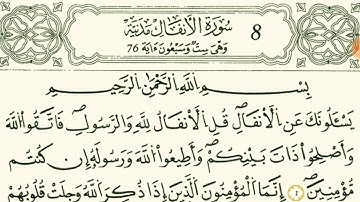 سُورَةُ الْأَنْفَالِ مَدَنِيَّةٌ 8
وَهِيَ سِتٌّ وَسَبْعُونَ ءَايَةً 76
بِسْمِ اللَّهِ الرَّحْمَٰنِ الرَّحِيمِ
يَسْـَٔلُونَكَ عَنِ الْأَنْفَالِ قُلِ الْأَنْفَالُ لِلَّهِ وَالرَّسُولِ فَاتَّقُوا اللَّهَ
وَأَصْلِحُوا ذَاتَ بَيْنِكُمْ وَأَطِيعُوا اللَّهَ وَرَسُولَهُ إِن كُنتُم
مُّؤْمِنِينَ ١ إِنَّمَا الْمُؤْمِنُونَ الَّذِينَ إِذَا ذُكِرَ اللَّهُ وَجِلَتْ قُلُوبُهُمْ